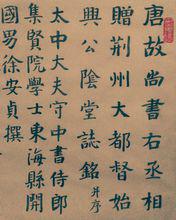 唐故尚書右丞相
贈荆州大都督始
興公陰堂誌銘并序
太中大夫守中書侍郎
集賢院學士東海縣開
國男徐安貞撰